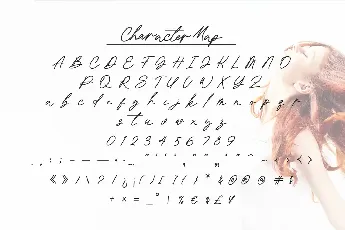 Character Map
A B C D E F G H I J K L M N O
P Q R S T U V W X Y Z
a b c d e f g h i j k l m n o p q r
s t u v w x y z
0 1 2 3 4 5 6 7 8 9
+ × = _ ° | % € ¢ £ ¥